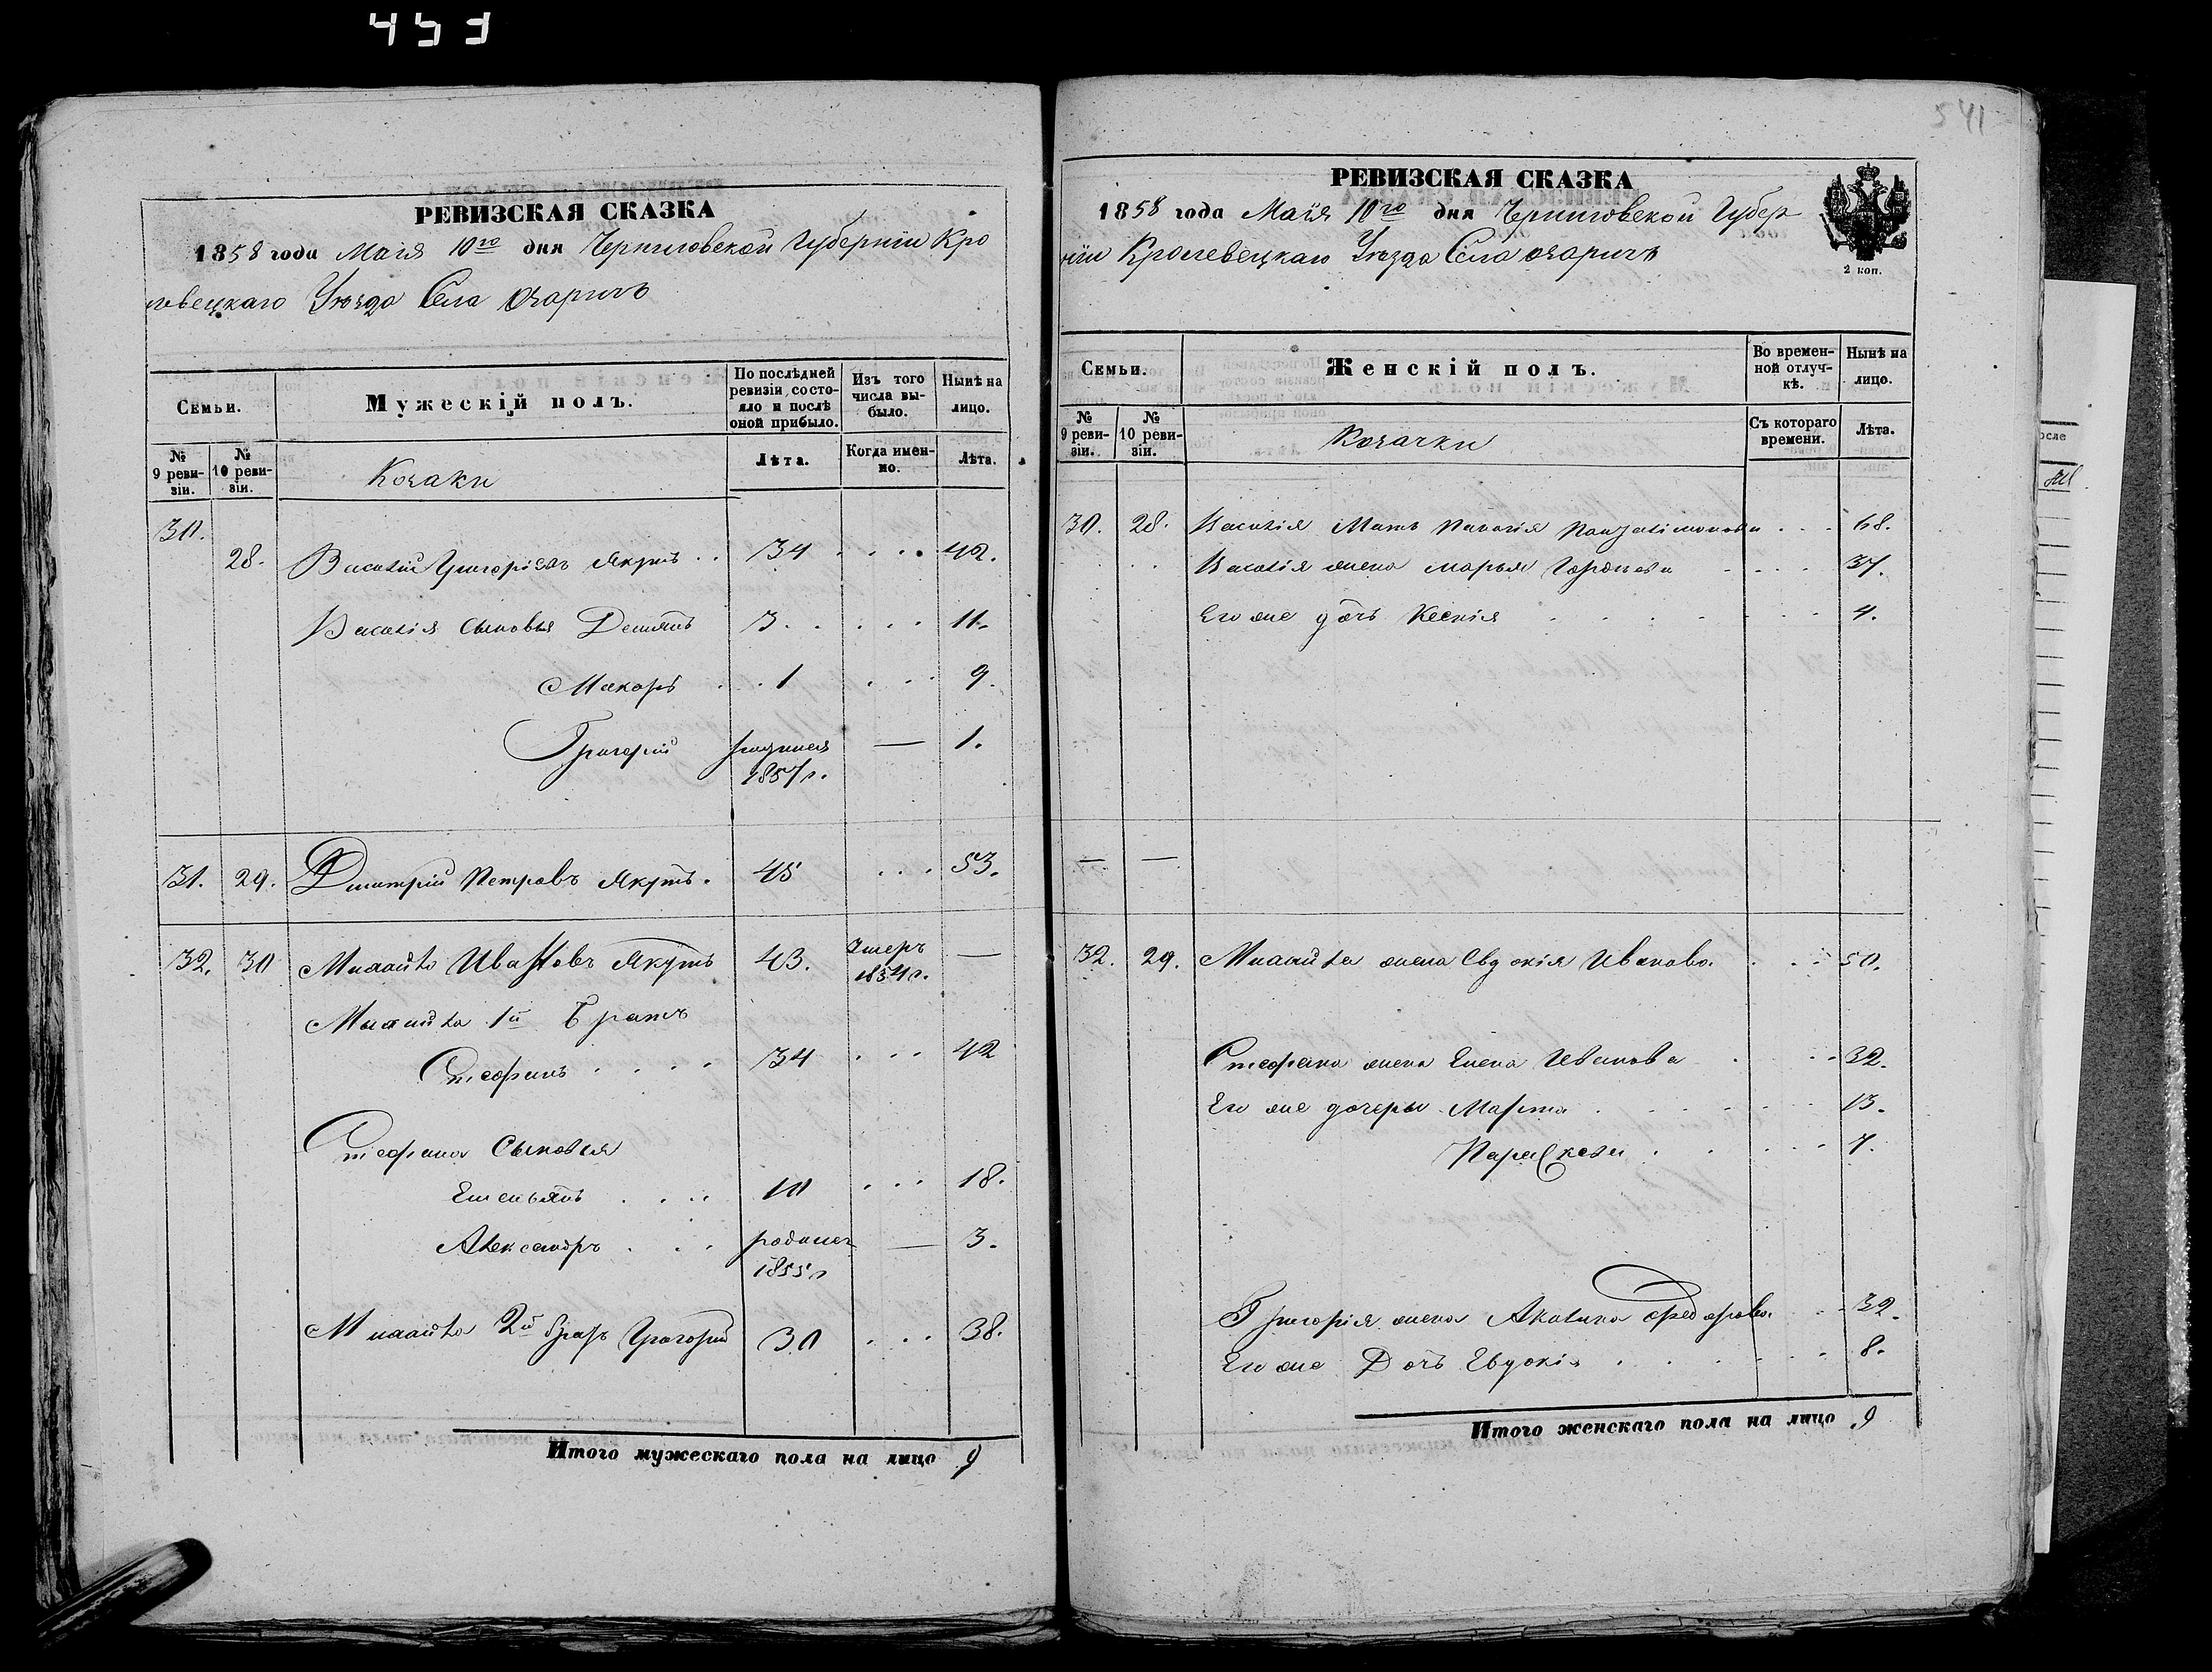 453
541
РЕВИЗСКАЯ СКАЗКА
1858 года Маія 10го дня Черниговской Губерніи Кро
левецкаго Уѣзда Села Озаричъ
Семьи.
Мужескій полъ.
По послѣдней ревизіи состояло и послѣ оной прибыло.
Изъ того числа выбыло.
Нынѣ на лицо.
№ 9 ревизіи.
№ 10 ревизіи.
Козаки
Лѣта.
Когда именно.
Лѣта.
30.
28. Василій Григоріевъ Якутъ . . 34 . . . . 42.
Василія сыновья Демянъ 3. . . . . 11.
Макаръ . . 1 . . . 9.
Григорій родился 1857 г. — 1.
31. 29. Дмитрій Петровъ Якутъ. 45 . . . 53.
32. 30 Михайло Ивановъ Якутъ 43. Умеръ —
Михайла 1й Братъ
Стефанъ . . . . 34 . . . 42
Стефана Сыновья
Емельянъ . . . . 10 . . . 18.
Александръ . . . родился 1855 г — 3.
Михайла 2й братъ Григорій 30 . . . 38.
Итого мужескаго пола на лицо 9
РЕВИЗСКАЯ СКАЗКА
1858 года Маія 10го дня Черниговской Губер
ніи Кролевецкаго Уѣзда Села Озаричъ
2 коп.
Семьи.
Женскій полъ.
Во временной отлучкѣ.
Нынѣ на лицо.
№ 9 ревизіи.
№ 10 ревизіи.
Козачки
Съ котораго времени.
Лѣта.
30. 28. Василія Мать . . . 68.
Василія жена Марья Гордѣева . . . . 37.
Его же дочь Ксенія . . . . . . . 4.
— —
32. 29. Михайла жена Евдокія Иванова. . . . 50.
Стефана жена Елена Иванова . . . 32.
Его же дочеры Марфа . . . . . . 13.
Параскева . . . . . 7.
Григорія жена Акилина Федорова. . . 32.
Его же Дочь Евдокія . . . . . . 8.
Итого женскаго пола на лицо 9